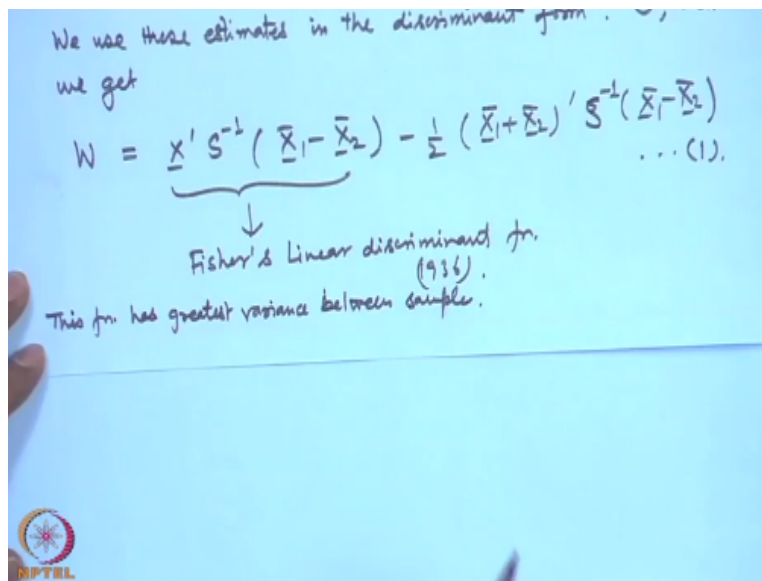 We use these estimates in the discriminant
we get
W = x' S⁻¹ ( X̄₁ - X̄₂ ) - 1/2 ( X̄₁ + X̄₂ )' S⁻¹ ( X̄₁ - X̄₂ )
... (1).
Fisher's Linear discriminant fn.
(1936).
This fn. has greatest variance between sample.
NPTEL